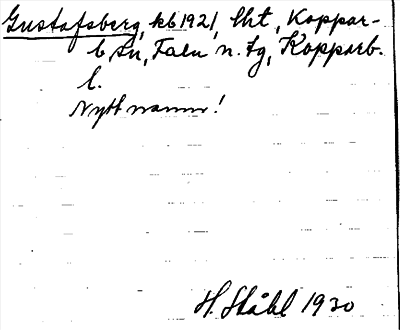 Gustafsberg, kb 1921, lht, Koppar-
b. sn, Falu n. tg, Kopparb.
l.
Nytt namn!
H. Ståhl 1930